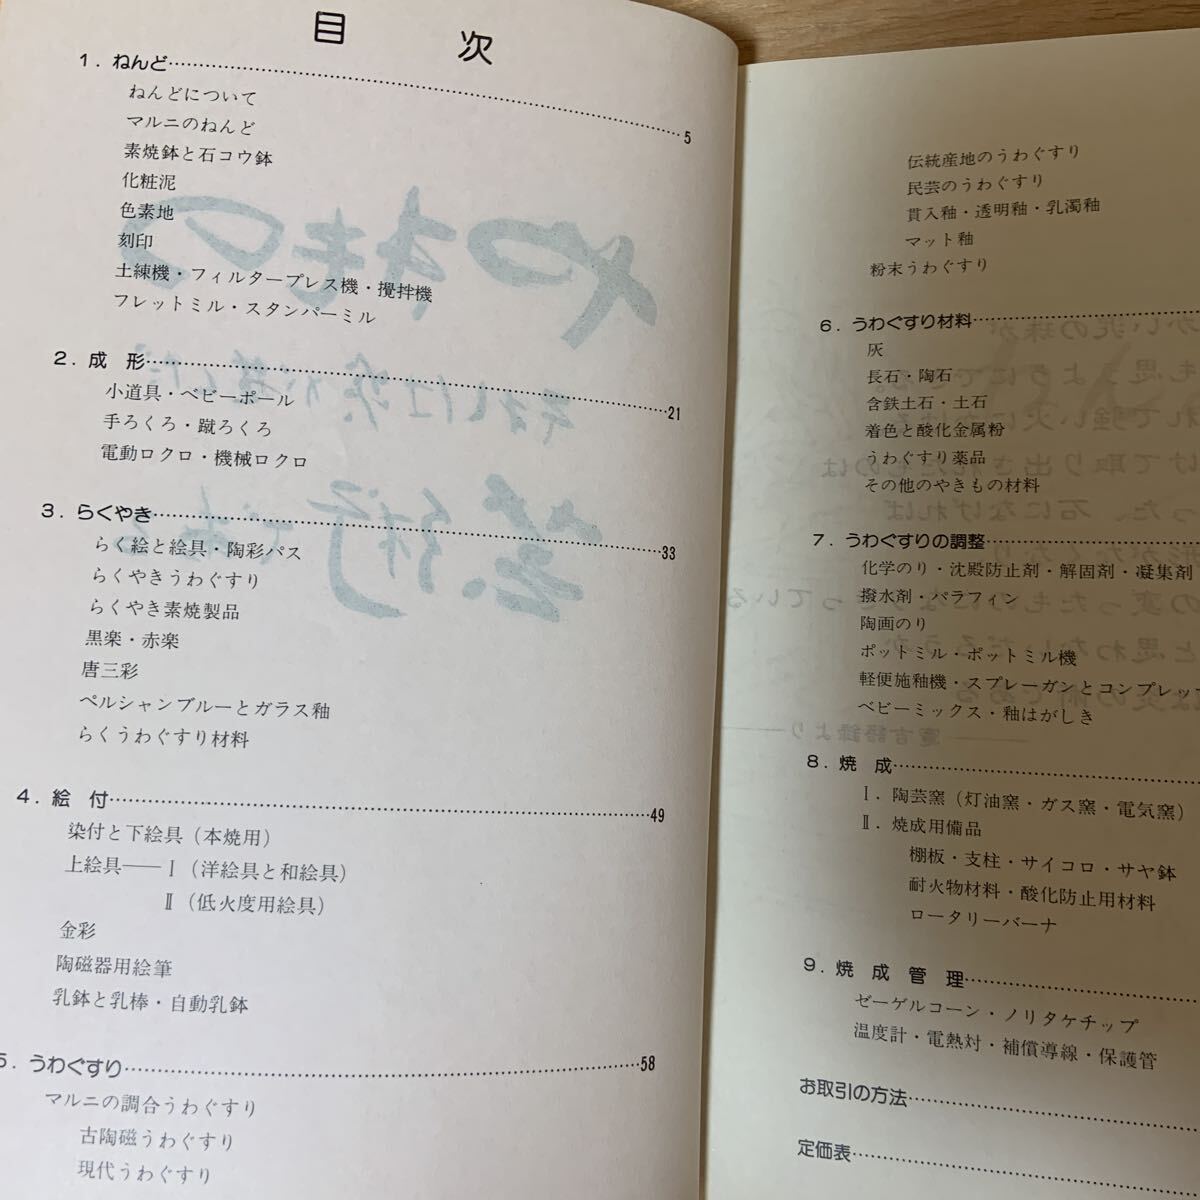 目 次
1. ねんど……………………5
ねんどについて
マルニのねんど
素焼鉢と石コウ鉢
化粧泥
色素地
刻印
土練機・フィルタープレス機・攪拌機
フレットミル・スタンパーミル
2. 成 形……………………21
小道具・ベビーボール
手ろくろ・蹴ろくろ
電動ロクロ・機械ロクロ
3. らくやき……………………33
らく絵と絵具・陶彩パス
らくやきうわぐすり
らくやき素焼製品
黒楽・赤楽
唐三彩
ペルシャンブルーとガラス釉
らくうわぐすり材料
4. 絵 付……………………49
染付と下絵具(本焼用)
上絵具――Ⅰ(洋絵具と和絵具)
Ⅱ(低火度用絵具)
金彩
陶磁器用絵筆
乳鉢と乳棒・自動乳鉢
5. うわぐすり……………………58
マルニの調合うわぐすり
古陶磁うわぐすり
現代うわぐすり
伝統産地のうわぐすり
民芸のうわぐすり
貫入釉・透明釉・乳濁釉
マット釉
粉末うわぐすり
6. うわぐすり材料……………………
灰
長石・陶石
含鉄土石・土石
着色と酸化金属粉
うわぐすり薬品
その他のやきもの材料
7. うわぐすりの調整……………………
化学のり・沈殿防止剤・解固剤・凝集剤
撥水剤・パラフィン
陶画のり
ポットミル・ポットミル機
軽便施釉機・スプレーガンとコンプレッサ
ベビーミックス・釉はがしき
8. 焼 成……………………
Ⅰ. 陶芸窯(灯油窯・ガス窯・電気窯)
Ⅱ. 焼成用備品
棚板・支柱・サイコロ・サヤ鉢
耐火物材料・酸化防止用材料
ロータリーバーナ
9. 焼 成 管 理……………………
ゼーゲルコーン・ノリタケチップ
温度計・電熱対・補償導線・保護管
お取引の方法……………………
定価表……………………